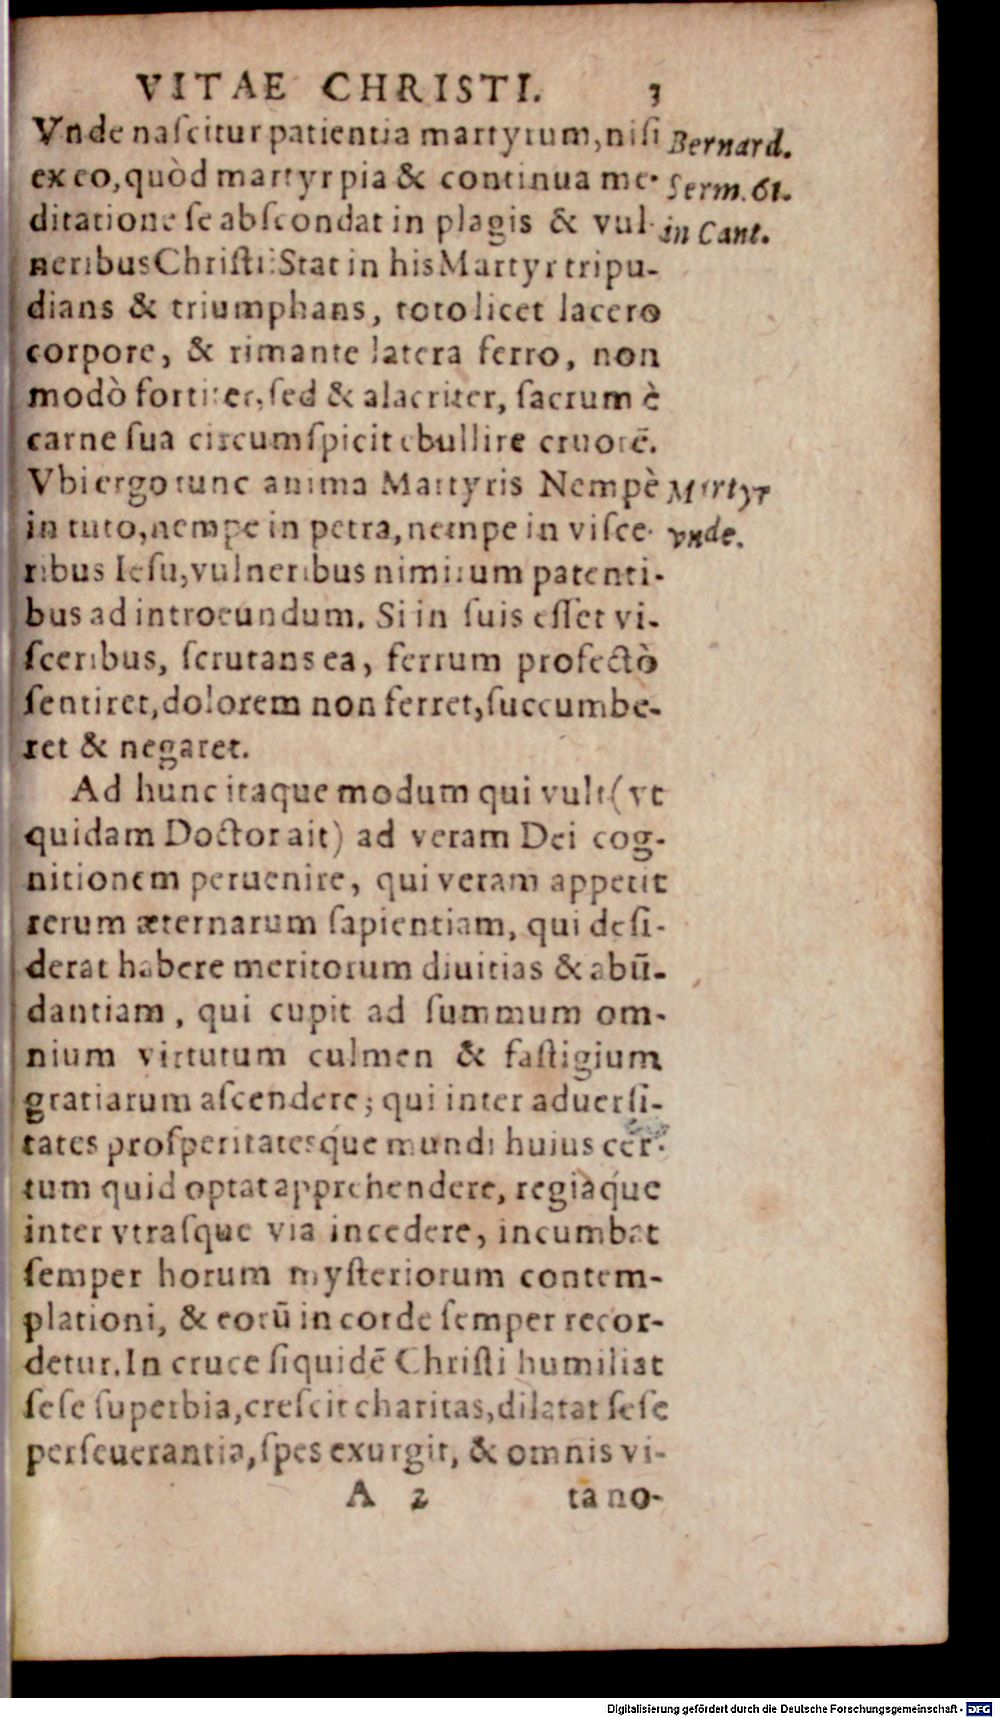 VITAE CHRISTI. 3
Vnde nascitur patientia martyrum, nisi
ex eo, quòd martyr pia & continua me-
ditatione se abscondat in plagis & vul-
neribus Christi: Stat in his Martyr tripu-
dians & triumphans, toto licet lacero
corpore, & rimante latera ferro, non
modò fortiter, sed & alacriter, sacrum è
carne sua circumspicit ebullire cruorē.
Vbi ergo tunc anima Martyris Nempè
in tuto, nempe in petra, nempe in visce-
ribus Iesu, vulneribus nimirum patenti-
bus ad introeundum. Si in suis esset vi-
sceribus, scrutans ea, ferrum profectò
sentiret, dolorem non ferret, succumbe-
ret & negaret.
Ad hunc itaque modum qui vult (vt
quidam Doctor ait) ad veram Dei cog-
nitionem peruenire, qui veram appetit
rerum æternarum sapientiam, qui desi-
derat habere meritorum diuitias & abū-
dantiam, qui cupit ad summum om-
nium virtutum culmen & fastigium
gratiarum ascendere; qui inter aduersi-
tates prosperitatesque mundi huius cer-
tum quid optat apprehendere, regiàque
inter vtrasque via incedere, incumbat
semper horum mysteriorum contem-
plationi, & eorū in corde semper recor-
detur. In cruce siquidē Christi humiliat
sese superbia, crescit charitas, dilatat sese
perseuerantia, spes exurgit, & omnis vi-
A 2 ta no-
Bernard.
Serm. 61.
in Cant.
Martyr
vnde.
Digitalisierung gefördert durch die Deutsche Forschungsgemeinschaft - DFG